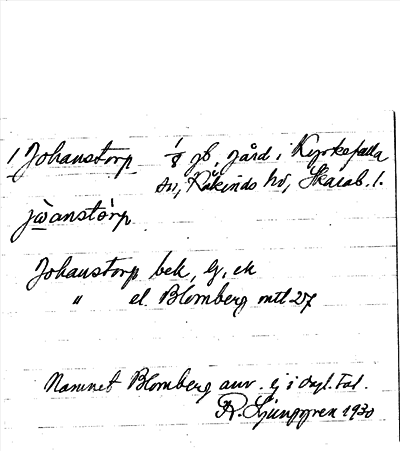 1 Johanstorp 1/8 jb, gård i Kyrkefalla
sn, Kåkinds hd, Skarab. l.
jɷ̀anstò̩rp
Johanstorp bek, lg, ek
" el. Blomberg mtl 27
Namnet Blomberg anv. ej i dagl. tal.
R. Ljunggren 1930